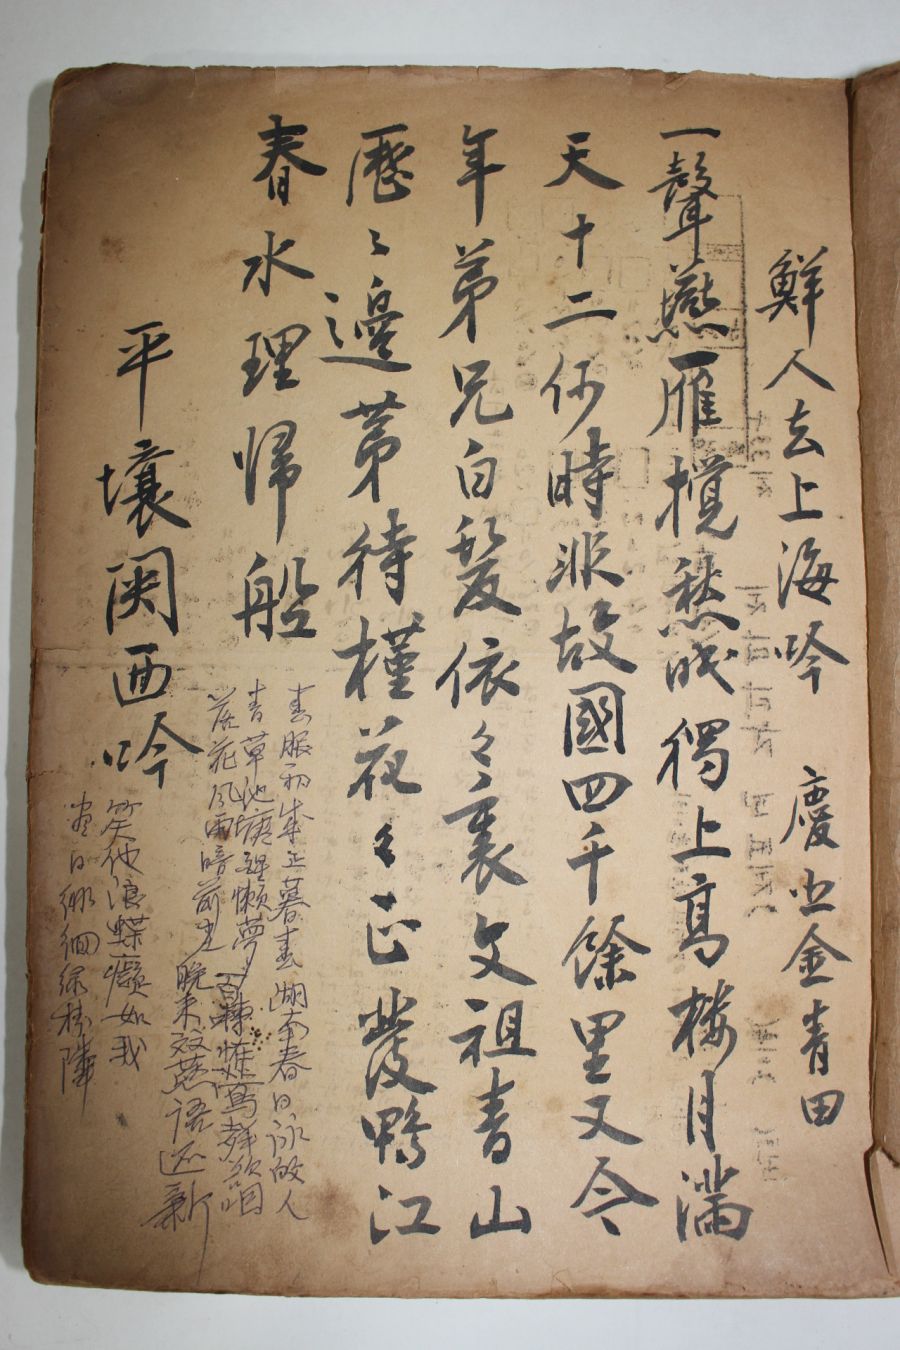 鮮人去上海吟 慶尚金青田
一聲鴈雁攪愁眠獨上高楼月滿
天十二何時非故國四千餘里又今
年弟兄白髮依々裏文祖青山
歷々邊第待槿花々正發鴨江
春水理帰船
春服初成正暮春湖南春日詠故人
青草池塘懶夢
落花風雨暗前
晩来燕語还新
平壤関西吟
笑他浪蝶癡如我
盡日徘徊綠樹隣